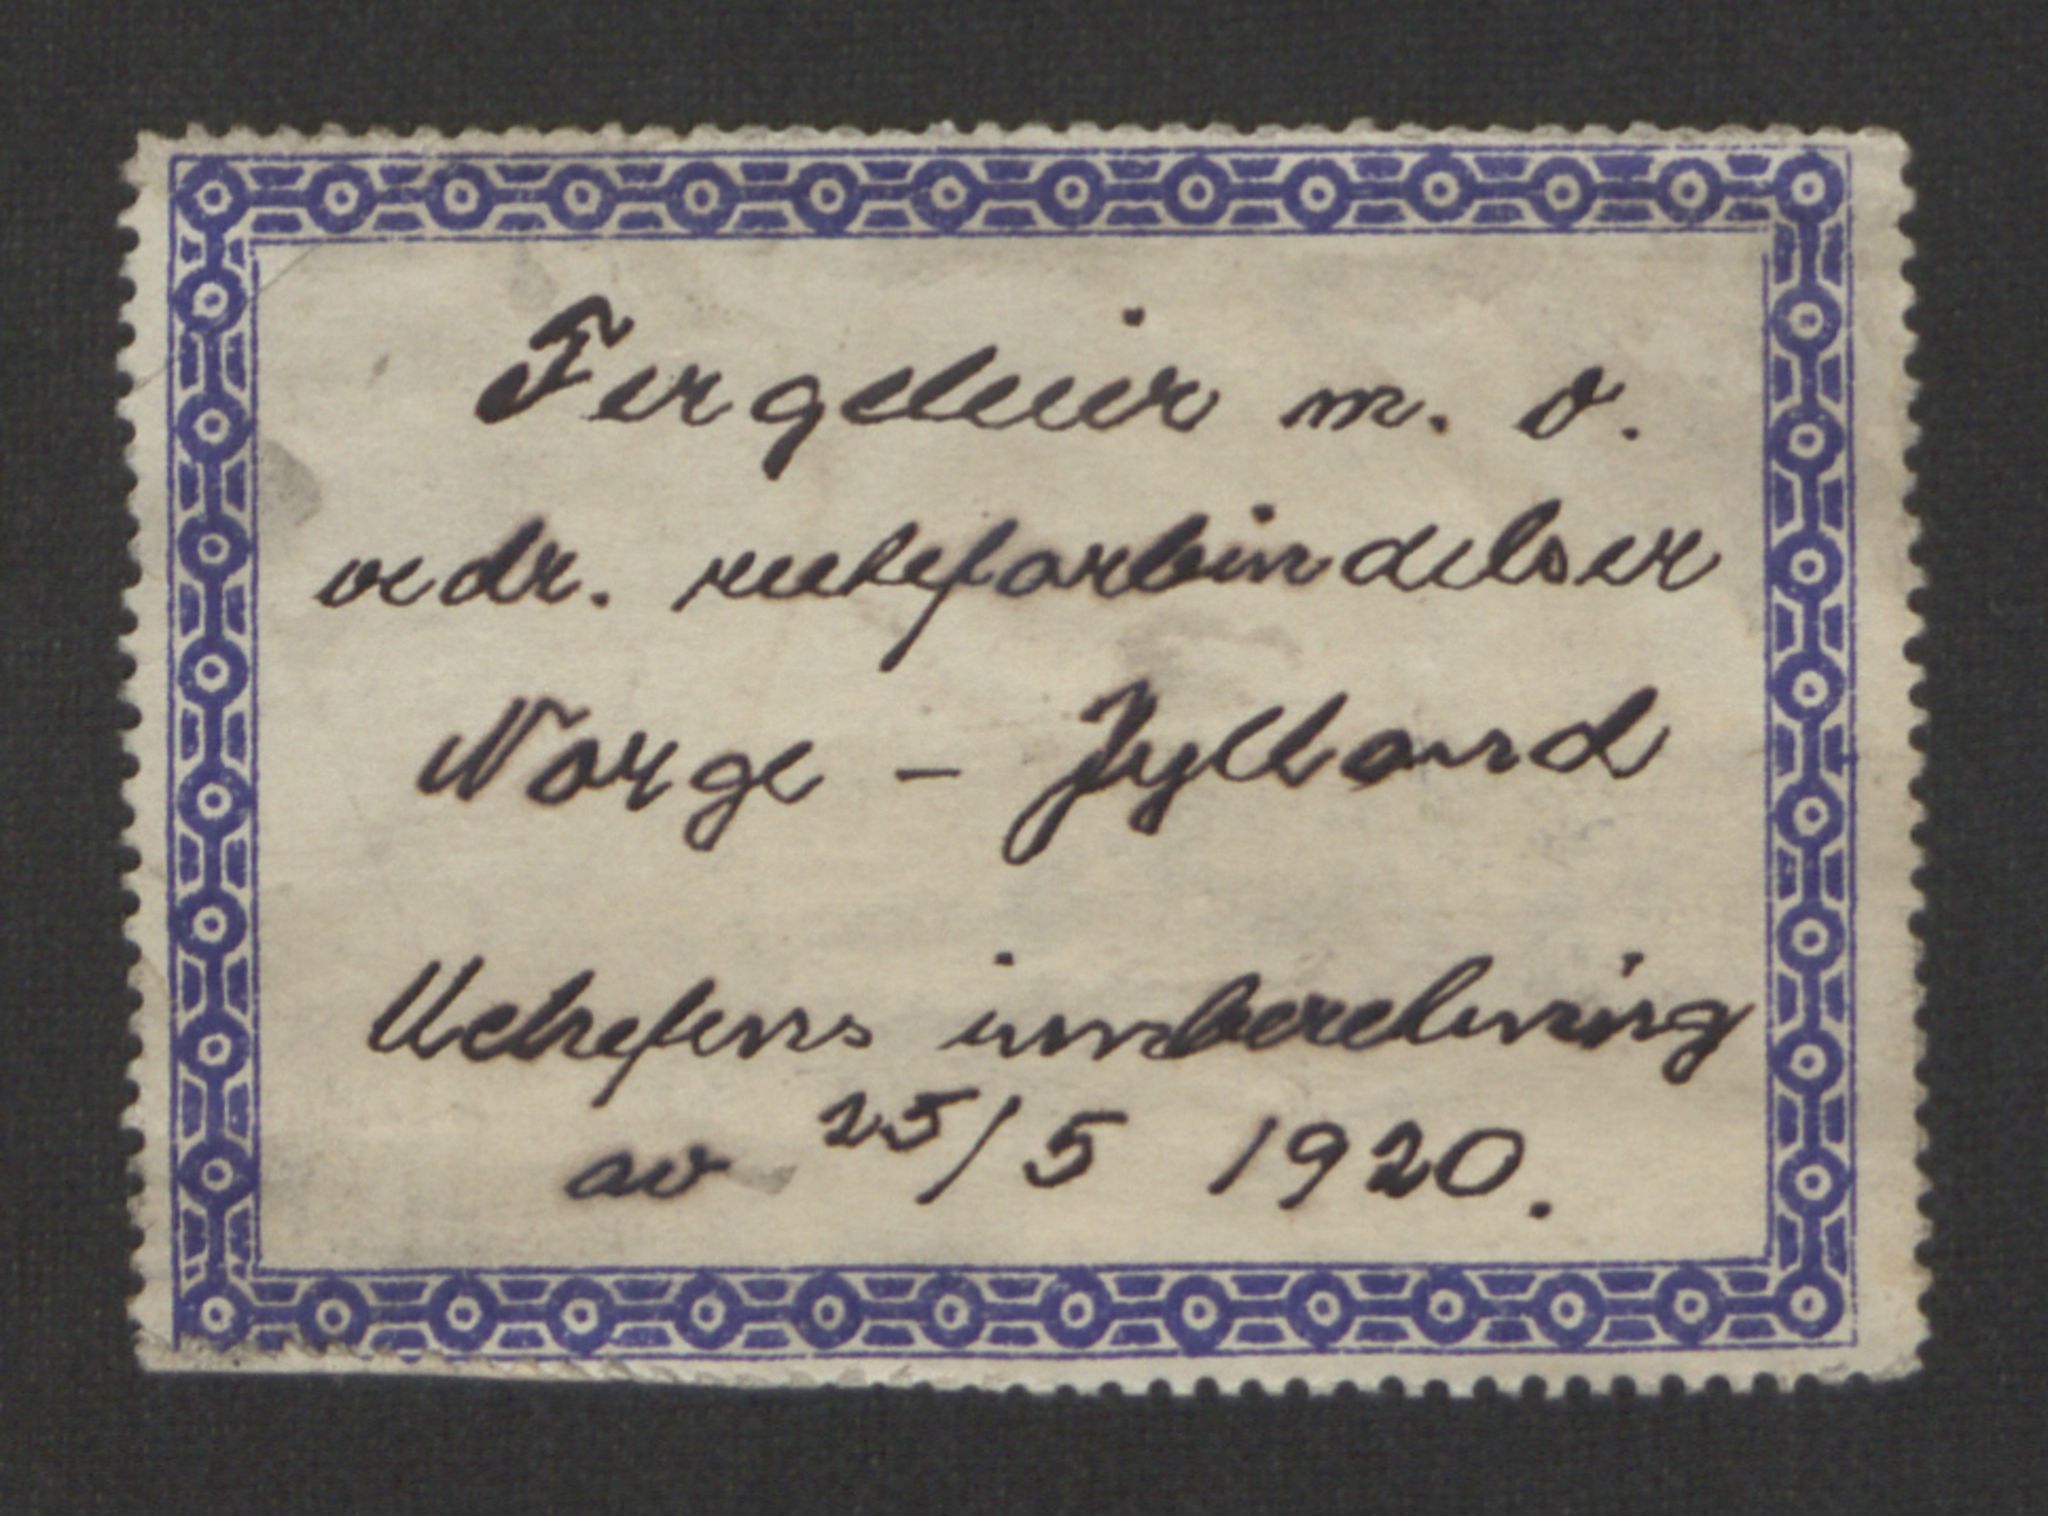 Fergeleier m. v.
vedr. ruteforbindelser
Norge - Jylland
Utrefens innberetning
av 25/5 1920.